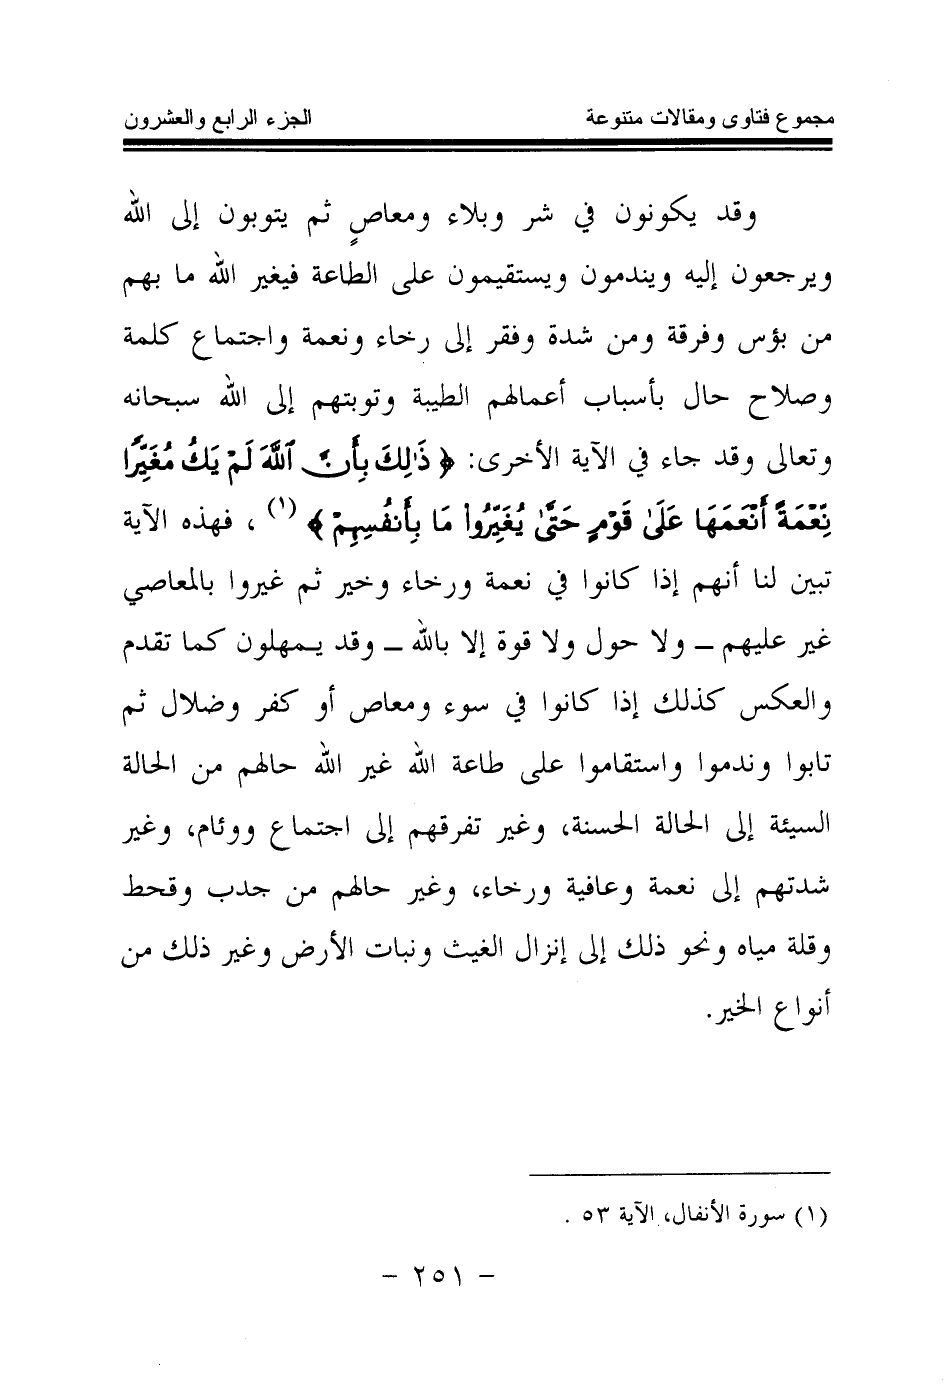 مجموع فتاوى ومقالات متنوعة الجزء الرابع والعشرون
وقد يكونون في شر وبلاء ومعاصٍ ثم يتوبون إلى الله
ويرجعون إليه ويندمون ويستقيمون على الطاعة فيغير الله ما بهم
من بؤس وفرقة ومن شدة وفقر إلى رخاء ونعمة واجتماع كلمة
وصلاح حال بأسباب أعمالهم الطيبة وتوبتهم إلى الله سبحانه
وتعالى وقد جاء في الآية الأخرى: ﴿ ذَٰلِكَ بِأَنَّ ٱللَّهَ لَمْ يَكُ مُغَيِّرًا
نِّعْمَةً أَنْعَمَهَا عَلَىٰ قَوْمٍ حَتَّىٰ يُغَيِّرُوا۟ مَا بِأَنفُسِهِمْ ﴾ (١) ، فهذه الآية
تبين لنا أنهم إذا كانوا في نعمة ورخاء وخير ثم غيروا بالمعاصي
غير عليهم – ولا حول ولا قوة إلا بالله – وقد يمهلون كما تقدم
والعكس كذلك إذا كانوا في سوء ومعاص أو كفر وضلال ثم
تابوا وندموا واستقاموا على طاعة الله غير الله حالهم من الحالة
السيئة إلى الحالة الحسنة، وغير تفرقهم إلى اجتماع ووئام، وغير
شدتهم إلى نعمة وعافية ورخاء، وغير حالهم من جدب وقحط
وقلة مياه ونحو ذلك إلى إنزال الغيث ونبات الأرض وغير ذلك من
أنواع الخير.
(١) سورة الأنفال، الآية ٥٣ .
– ٢٥١ –